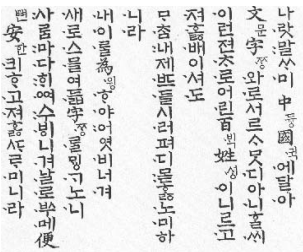 나랏말ᄊᆞ미中듕國귁에달아
文문字ᄍᆞᆼ와로서르ᄉᆞᄆᆞᆺ디아니ᄒᆞᆯᄊᆡ
이런젼ᄎᆞ로어린百ᄇᆡᆨ姓셩이니르고
져호ᇙ배이셔도
ᄆᆞᄎᆞᆷ내제ᄠᅳ들시러펴디몯ᄒᆞᇙ노미하
니라
내이ᄅᆞᆯ為윙ᄒᆞ야어엿비너겨
새로스믈여듧字ᄍᆞᆼᄅᆞᆯᄆᆡᇰᄀᆞ노니
사ᄅᆞᆷ마다ᄒᆡᅇᅧ수ᄫᅵ니겨날로ᄡᅮ메便
뼌安한킈ᄒᆞ고져ᄒᆞᇙᄯᆞᄅᆞ미니라